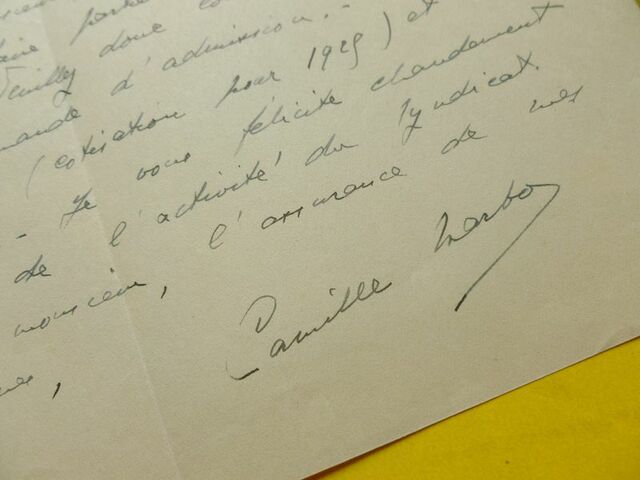 faire partie
Veuillez donc
mande d'admission. -
(cotisation pour 1929) et
- Je vous félicite chaudement
de l'activité du Syndicat.
monsieur, l'assurance de mes
Camille Marbo